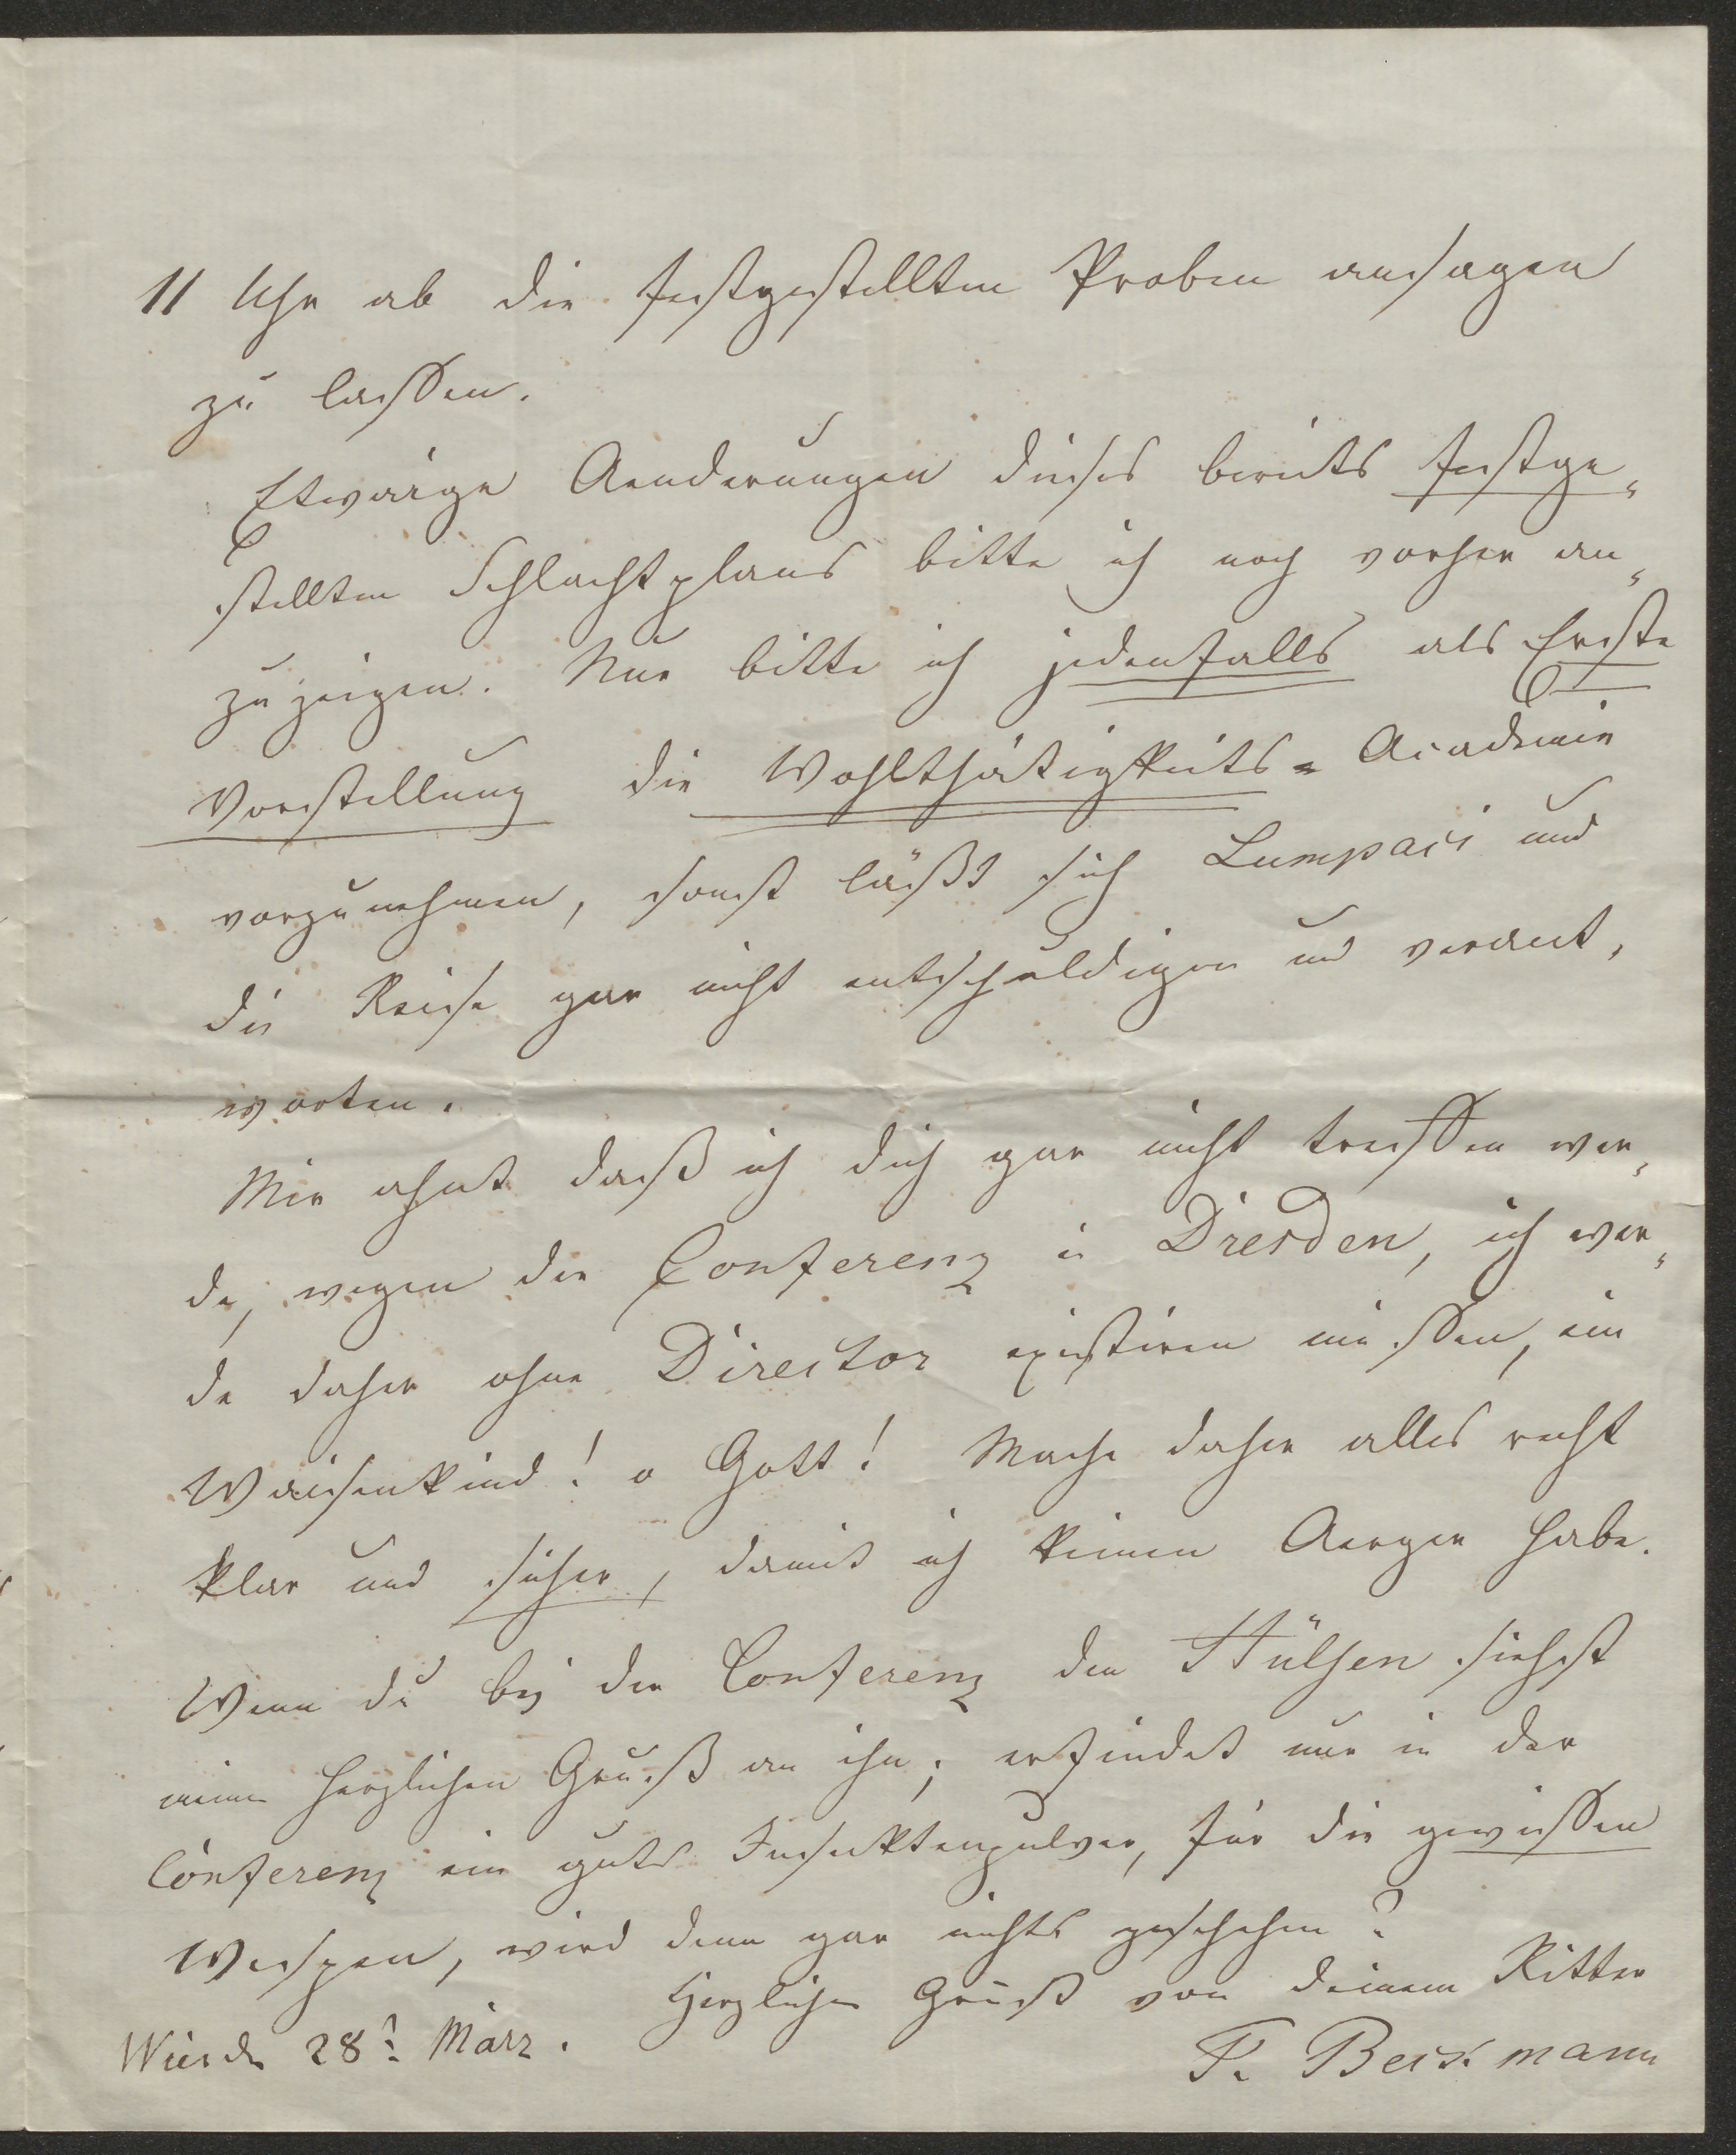 11 Uhr ab die festgestellten Proben ansagen
zu lassen.
Etwaige Aenderungen dieses bereits festge„
stellten Schlachtplans bitte ich noch vorher an„
zuzeigen. Nur bitte ich jedenfalls als Erste
Vorstellung die Wohlthätigkeits=Academie
vorzunehmen, sonst läßt sich Lumpaci und
die Reise gar nicht entschuldigen und verant,
worten.
Mir ahnt daß ich dich gar nicht treffen wer„
de, wegen der Conferenz in Dresden, ich wer„
de daher ohne Director existiren müssen, ein
Waisenkind! o Gott! Mache daher alles recht
klar und sicher, damit ich keinen Aerger habe.
Wenn du bej der Conferenz den Hülsen siehst
meinen herzlichen Gruß an ihn; erfindet nur in der
Conferenz ein gutes Insektenpulver, für die gewissen
Wespen, wird denn gar nichts geschehen?
Herzlichen Gruß von deinem Ritter
Wien den 28t März.
F. Beckmann